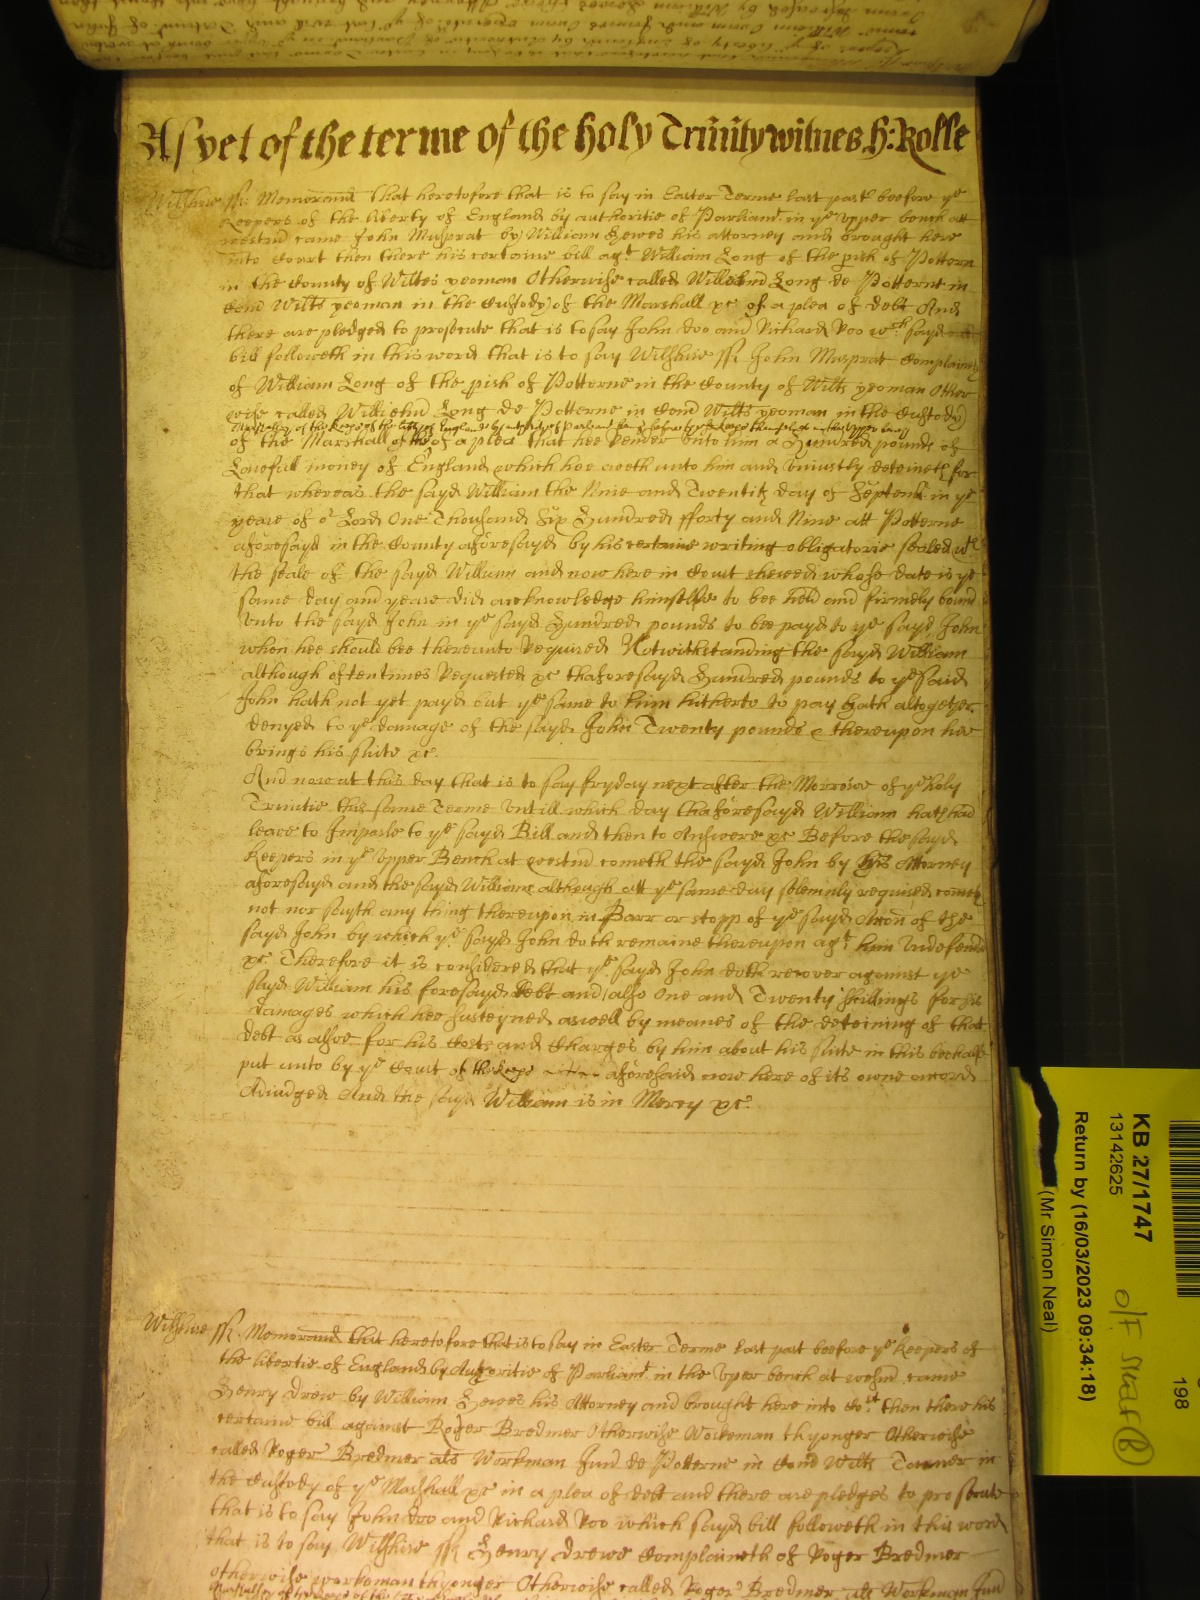 As yet of the terme of the holy Trinity witnes H: Rolle
Wiltshire ss: Memorand That heretofore that is to say in Easter Terme last past beefore ye
Keepers of the liberty of England by authoritie of Parliamt. in ye Upper bench att
westmd came John Musprat by William Hewes his attorney and brought here
into Court then there his certaine bill agt William Long of the pish of Potterne
in the County of Wiltes yeoman Otherwise called William Long de Potterne in
Com Wilts yeoman in the Custody of the Marshall &c of a plea of debt And
there are pledged to prosecute that is to say John Doo and Richard Roo wch. sayd
bill followeth in this word that is to say Wilshire ss: John Musprat Complaineth
of William Long of the pish of Potterne in the County of Wilts yeoman Other
wise called William Long de Potterne in Com Wilts yeoman in the Custody
of the Marshall of the of a plea that hee Render unto him a Hundred pounds of
Lawfull money of England which hee oweth unto him and Uniustly deteineth for
that whereas the sayd William the Nine and Twentith day of Septemb. in ye
yeare of or Lord One Thousand Six Hundred fforty and Nine att Potterne
aforesayd in the County aforesayd by his certaine writing obligatorie sealed wth
the seale of the sayd William and now here in Court shewed whose date is ye
same day and yeare did acknowledge himselfe to bee held and firmely bound
Unto the sayd John in ye sayd Hundred pounds to bee payd to ye sayd John
when hee should bee thereunto Required Notwithstanding the sayd William
although oftentimes Requested &c thaforesayd Hundred pounds to ye said
John hath not yet payd but ye same to him hitherto to pay hath altogether
denyed to ye damage of the sayd John Twenty pounds & thereupon hee
brings his suite &c.
And now at this day that is to say fryday next after the Morrowe of ye holy
Trinitie this same Terme Untill which day thaforesayd William hath had
leave to Imparle to ye sayd Bill and then to Answere &c Before the sayd
Keepers in ye Upper Bench at westmd cometh the sayd John by his Attorney
aforesayd and the sayd William although att ye same day solemnly required cometh
not nor sayth any thing thereupon in Barr or stopp of ye sayd Accon of the
sayd John by which ye sayd John doth remaine thereupon agt. him Undefended
&c. Therefore it is considered that ye sayd John doth recover against ye
sayd William his foresayd debt and also One and Twenty shillings for his
damages which hee susteyned aswell by meanes of the deteining of that
debt as alsoe for his Costs and Charges by him about his suite in this beehalfe
put unto by ye Court of aforesaid now here of its owne accord
Adiudged And the sayd William is in Mercy &c.
Wilshire ss: Memorand that heretofore that is to say in Easter Terme last past beefore ye Keepers of
the libertie of England by Authoritie of Parliamt. in the Uper bench at westmd came
Henry Drew by William Hewes his Attorney and brought here into Cort then there his
certaine bill against Roger Bredmer Otherwise Workeman thyonger Otherwise
called Roger Bredmer als Workman Jund de Potterne in Comd Wilts Tanner in
the Custody of ye Marshall &c in a plea of debt and there are pledges to prosecute
that is to say John Doo and Richard Roo which sayd bill followeth in this word
that is to say Wilshire ss: Henry Drewe Complaineth of Roger Bredmer
otherwise workeman thyonger Otherwise called Roger Bredmer als Workman Jund
KB 27/1747
13142625
Return by (16/03/2023 09:34:18)
(Mr Simon Neal)
198